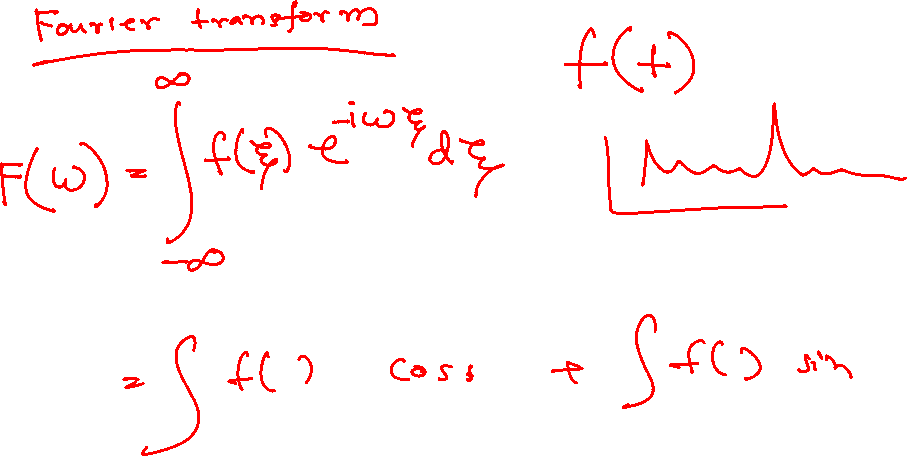 Fourier transform
f(t)
F(ω) = ∫_{-∞}^{∞} f(ξ) e^{-iωξ} dξ
= ∫ f( ) coss + ∫ f( ) sin